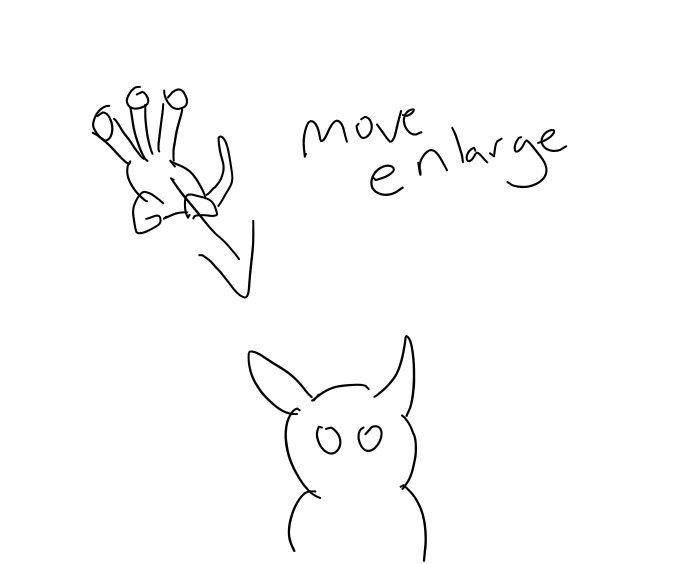 move
enlarge